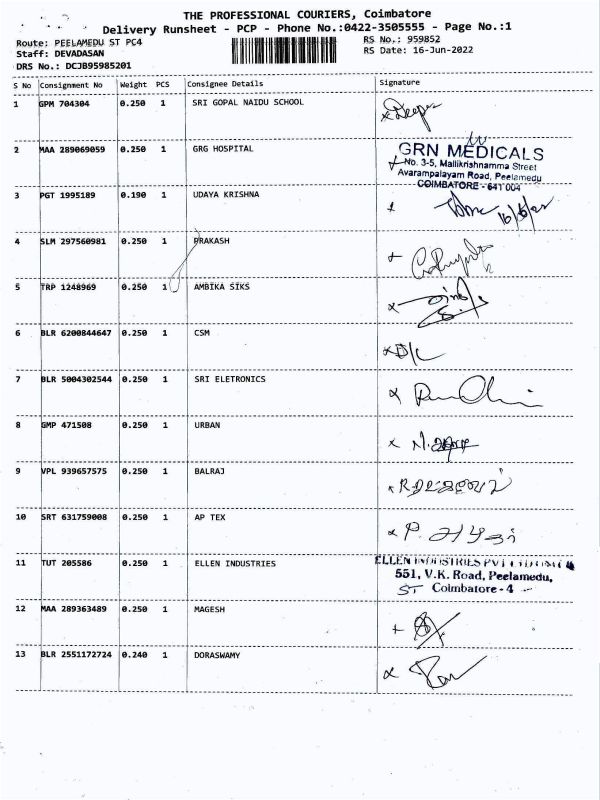 THE PROFESSIONAL COURIERS, Coimbatore
Delivery Runsheet - PCP - Phone No.:0422-3505555 - Page No.:1
Route: PEELAMEDU ST PC4 RS No.: 959852
Staff: DEVADASAN RS Date: 16-Jun-2022
DRS No.: DCJB95985201
S No Consignment No Weight PCS Consignee Details Signature
1 GPM 704304 0.250 1 SRI GOPAL NAIDU SCHOOL
2 MAA 289069059 0.250 1 GRG HOSPITAL
GRN MEDICALS
No. 3-5, Mallikrishnamma Street
Avarampalayam Road, Peelamedu
COIMBATORE - 641 004
3 PGT 1995189 0.190 1 UDAYA KRISHNA
16/6/22
4 SLM 297560981 0.250 1 PRAKASH
5 TRP 1248969 0.250 1 AMBIKA SIKS
6 BLR 6200844647 0.250 1 CSM
7 BLR 5004302544 0.250 1 SRI ELETRONICS
8 GMP 471508 0.250 1 URBAN
9 VPL 939657575 0.250 1 BALRAJ
10 SRT 631759008 0.250 1 AP TEX
11 TUT 205586 0.250 1 ELLEN INDUSTRIES
ELLEN INDUSTRIES PVT
551, V.K. Road, Peelamedu,
Coimbatore - 4
12 MAA 289363489 0.250 1 MAGESH
13 BLR 2551172724 0.240 1 DORASWAMY